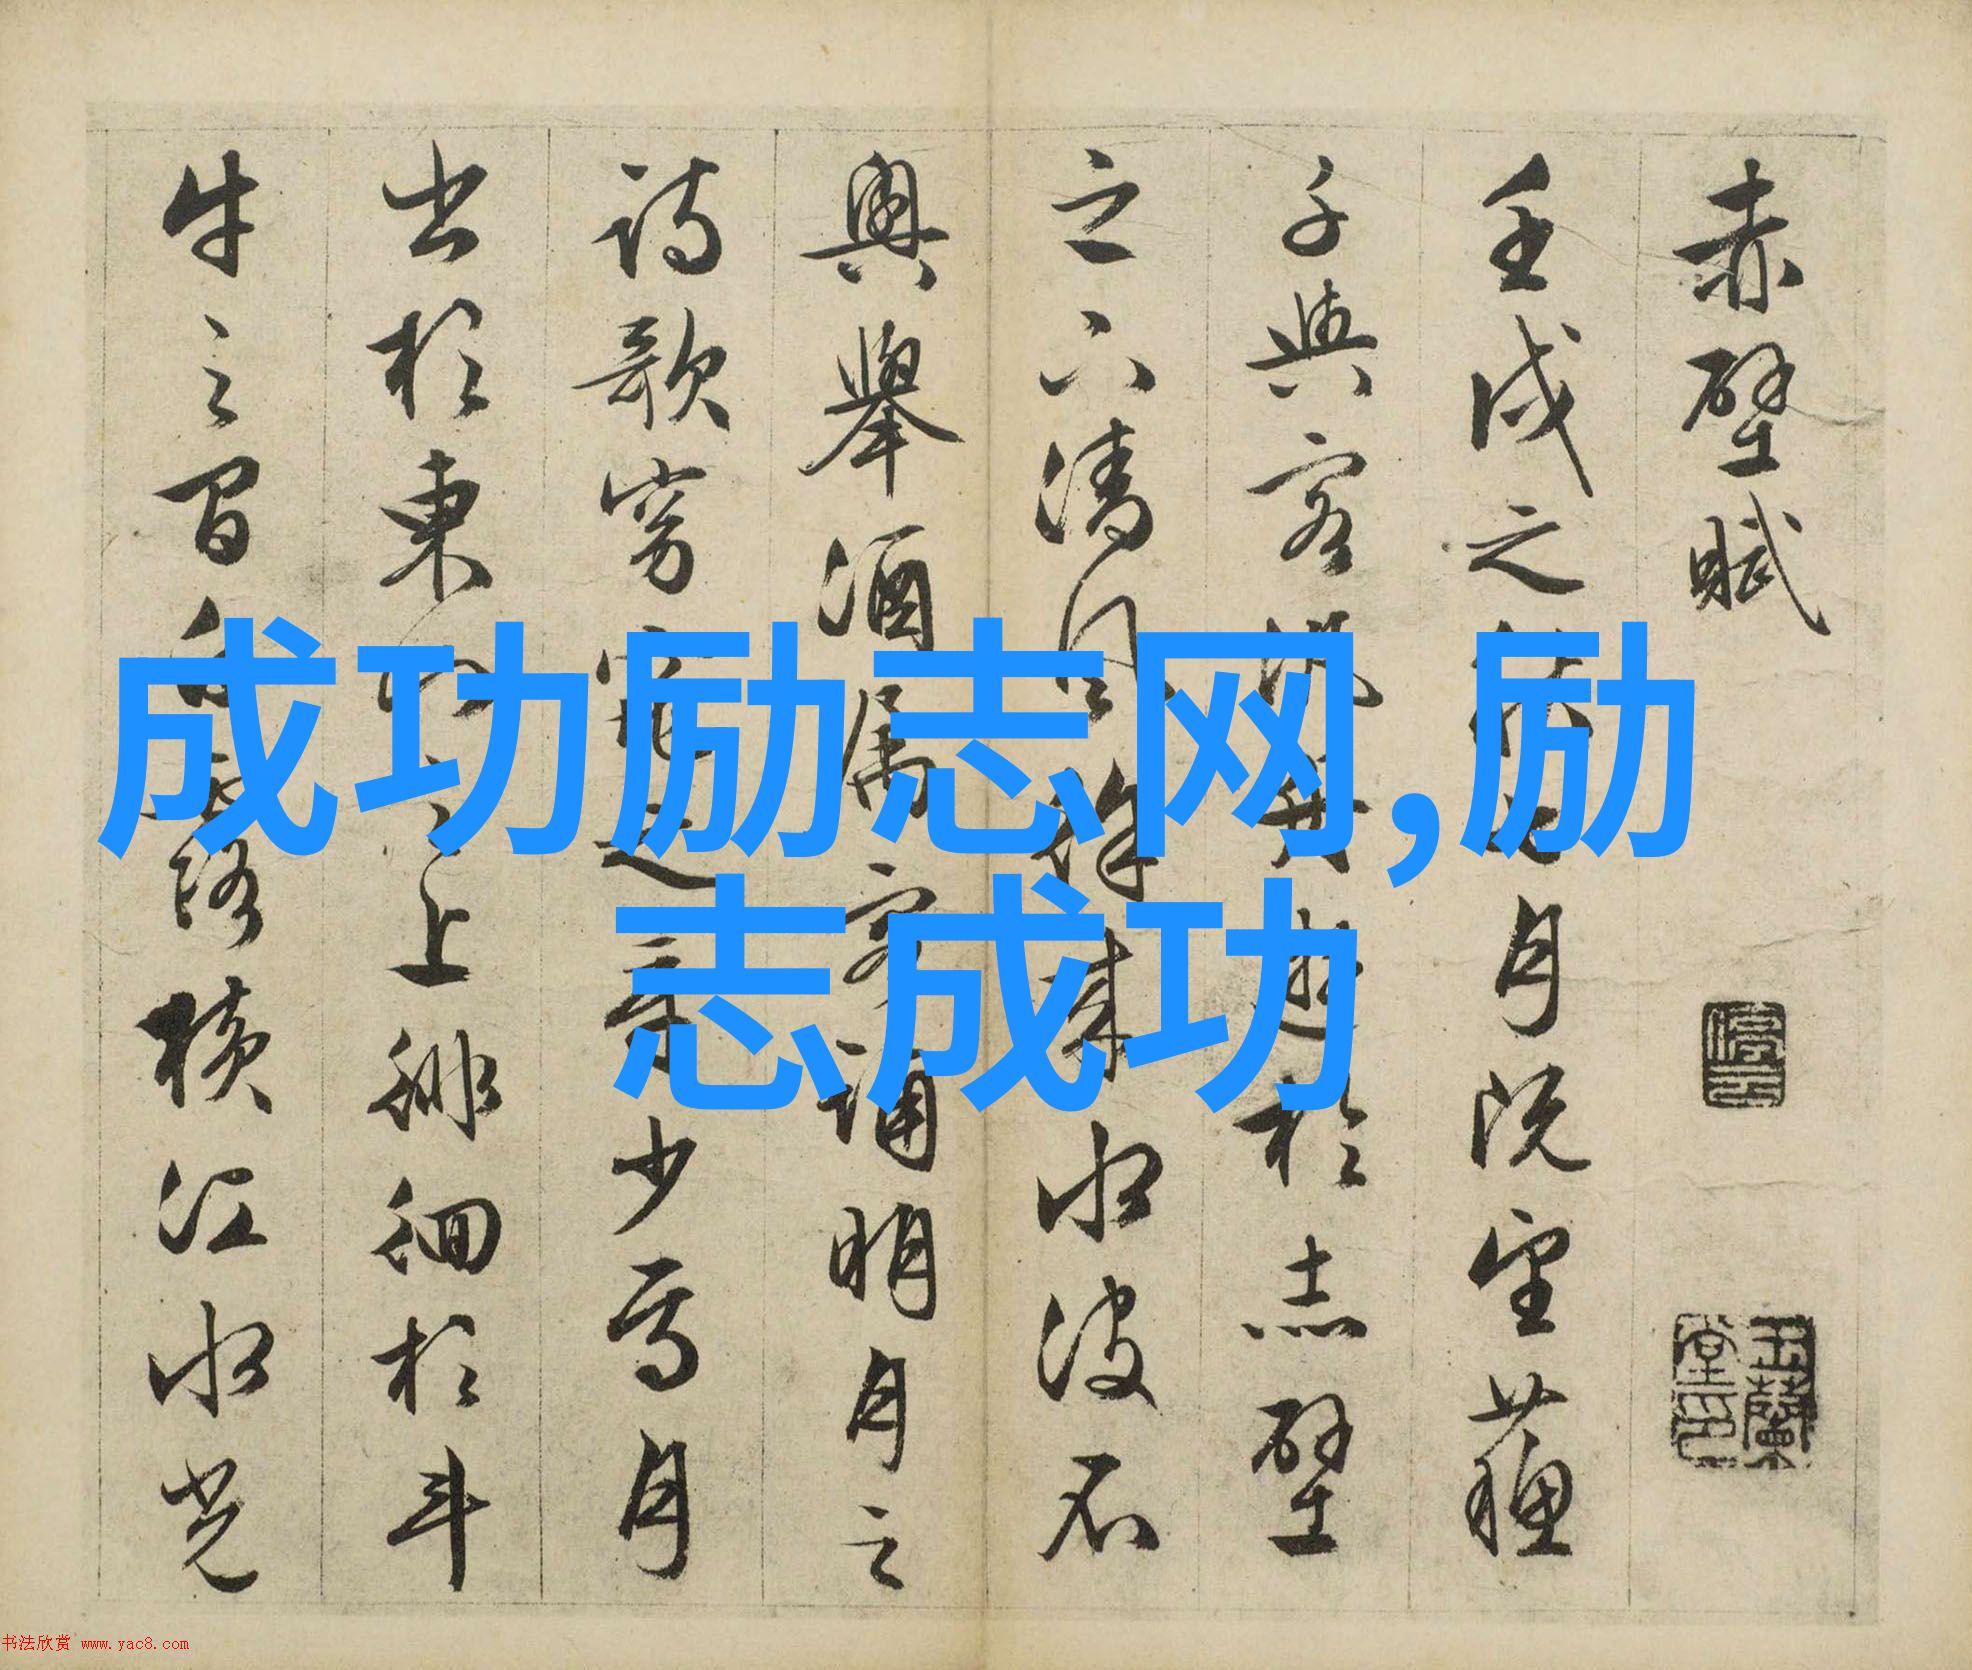 赤壁賦
壬戌之秋七月既望蘇
子與客泛舟遊於赤壁
之下清風徐來水波不
興舉酒属客誦明月之
詩歌窈窕之章少焉月
出於東山之上徘徊於斗
牛之間白露橫江水光
成功励志网,励
志成功
书法欣赏 www.yac8.com